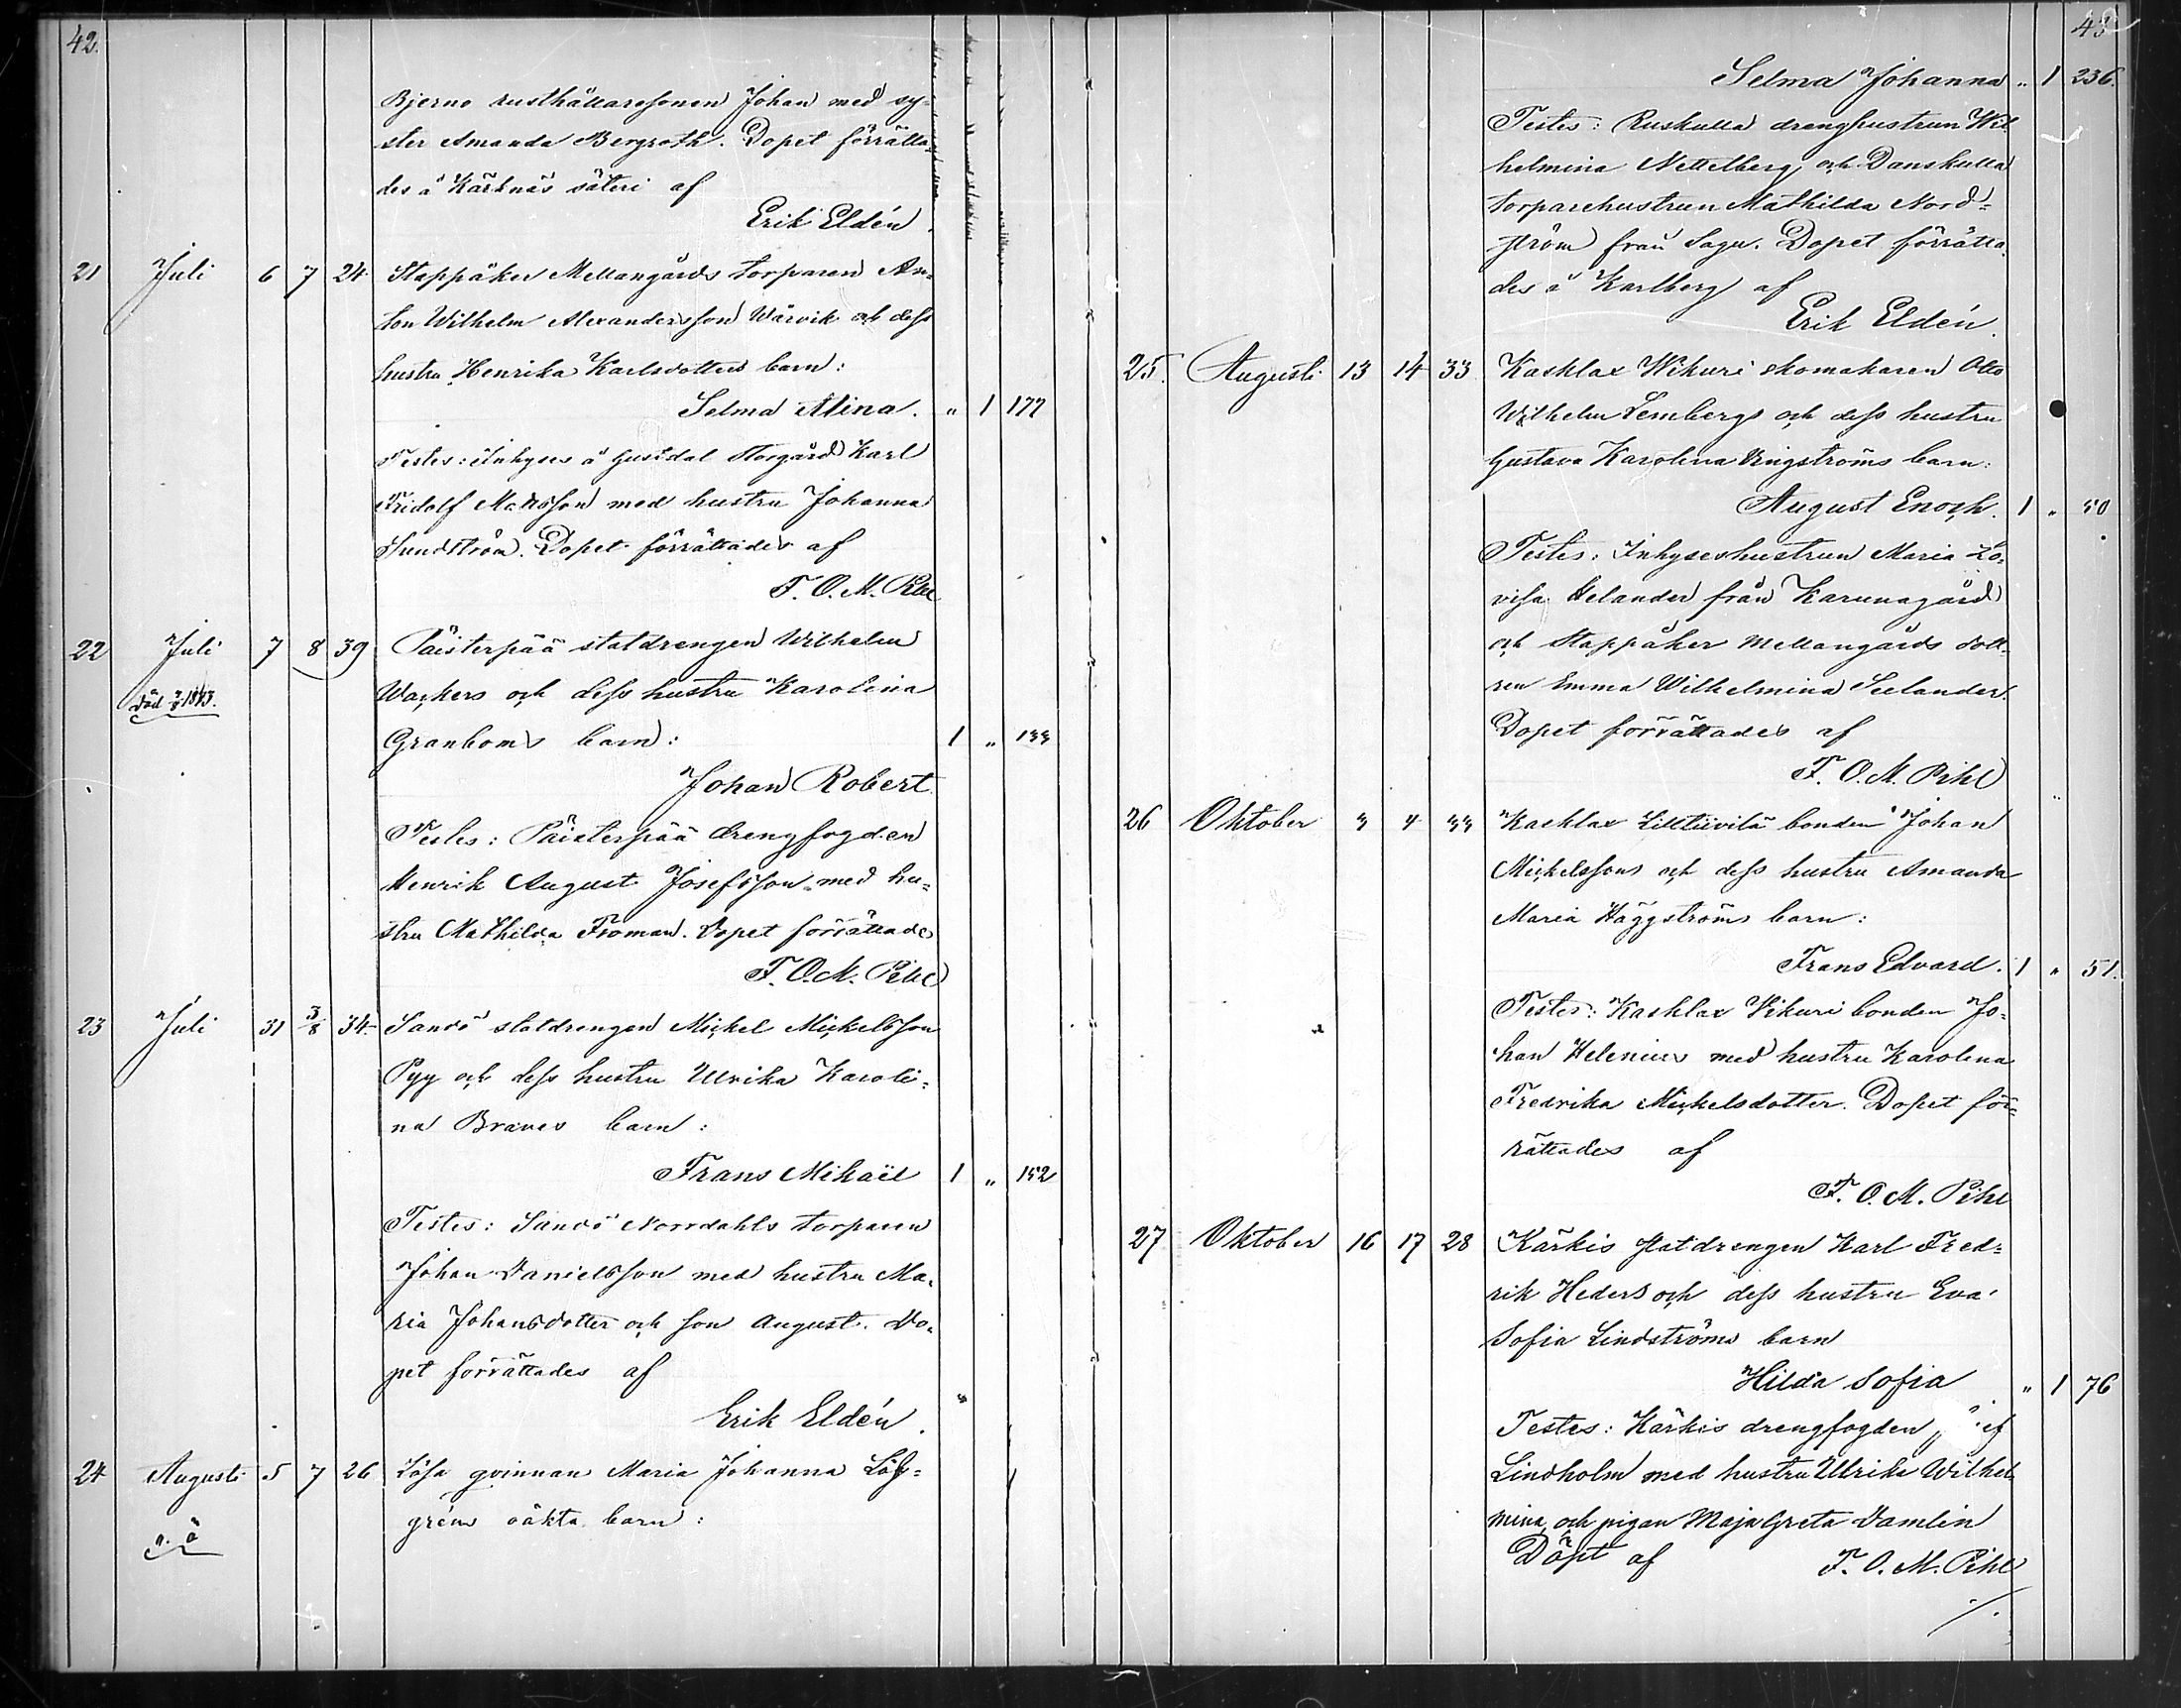 42.
Bjerno rusthållaresonen Johan med sy-
ster Amanda Bergroth. Dopet förrätta-
des å Kärknäs säteri af
Erik Eldén.
21 Juli 6 7 24 Stappåker Mellangårds torparen An-
ton Wilhelm Alexandersson Wärvik och dess
hustru Henrika Karlsdotters barn:
Selma Alina. " 1 177
Testes: Inhyses å Gustdal Storgård Karl
Fridolf Mattsson med hustru Johanna
Sundström. Dopet förrättades af
F. O. M. Pihl
22 Juli 7 8 39 Päisterpää statdrengen Wilhelm
Wackers och dess hustru Karolina
död 1873.
Granboms barn: 1 " 133
Johan Robert.
Testes: Päisterpää drengfogden
Henrik August Josefsson med hu-
stru Mathilda Froman. Dopet förrättades
F. O. M. Pihl
23 Juli 31 3/8 34 Sandö statdrengen Mickel Mickelsson
Pyy och dess hustru Ulrika Karoli-
na Braves barn:
Frans Mikaël 1 " 152
Testes: Sandö Norrdahls torparen
Johan Danielsson med hustru Ma-
ria Johansdotter och son August. Do-
pet förrättades af
Erik Eldén.
24 Augusti 5 7 26 Lösa qvinnan Maria Johanna Löf-
gréns oäkta barn:
o. ä
43
Selma Johanna " 1 236.
Testes: Ruskulla drenghustrun Wil-
helmina Nettelberg och Danskulla
torparehustrun Mathilda Nord-
ström från Sagu. Dopet förrätta-
des å Karlberg af
Erik Eldén.
25. Augusti 13 14 33 Kasklax Wikuri skomakaren Otto
Wilhelm Lembergs och dess hustru
Gustava Karolina Ringströms barn:
August Enoch. 1 " 50
Testes: Inhyseshustrun Maria Lo-
visa Helander från Karunagård
och Stappåker Mellangårds dott-
ren Emma Wilhelmina Seelander.
Dopet förrättades af
F. O. M. Pihl
26 Oktober 3 4 33 Kasklax Lilltiivilä bonden Johan
Mickelssons och dess hustru Amanda
Maria Häggströms barn:
Frans Edvard. 1 " 51.
Testes: Kasklax Wikuri bonden Jo-
han Helenius med hustru Karolina
Fredrika Mickelsdotter. Dopet för-
rättades af
F. O. M. Pihl
27 Oktober 16 17 28 Kärkis statdrengen Karl Fred-
rik Heders och dess hustru Eva
Sofia Lindströms barn
Hilda Sofia " 1 76
Testes: Kärkis drengfogden
Lindholm med hustru Ulrika Wilhel-
mina, och pigan Maja Greta Damlin
Döpt af F. O. M. Pihl